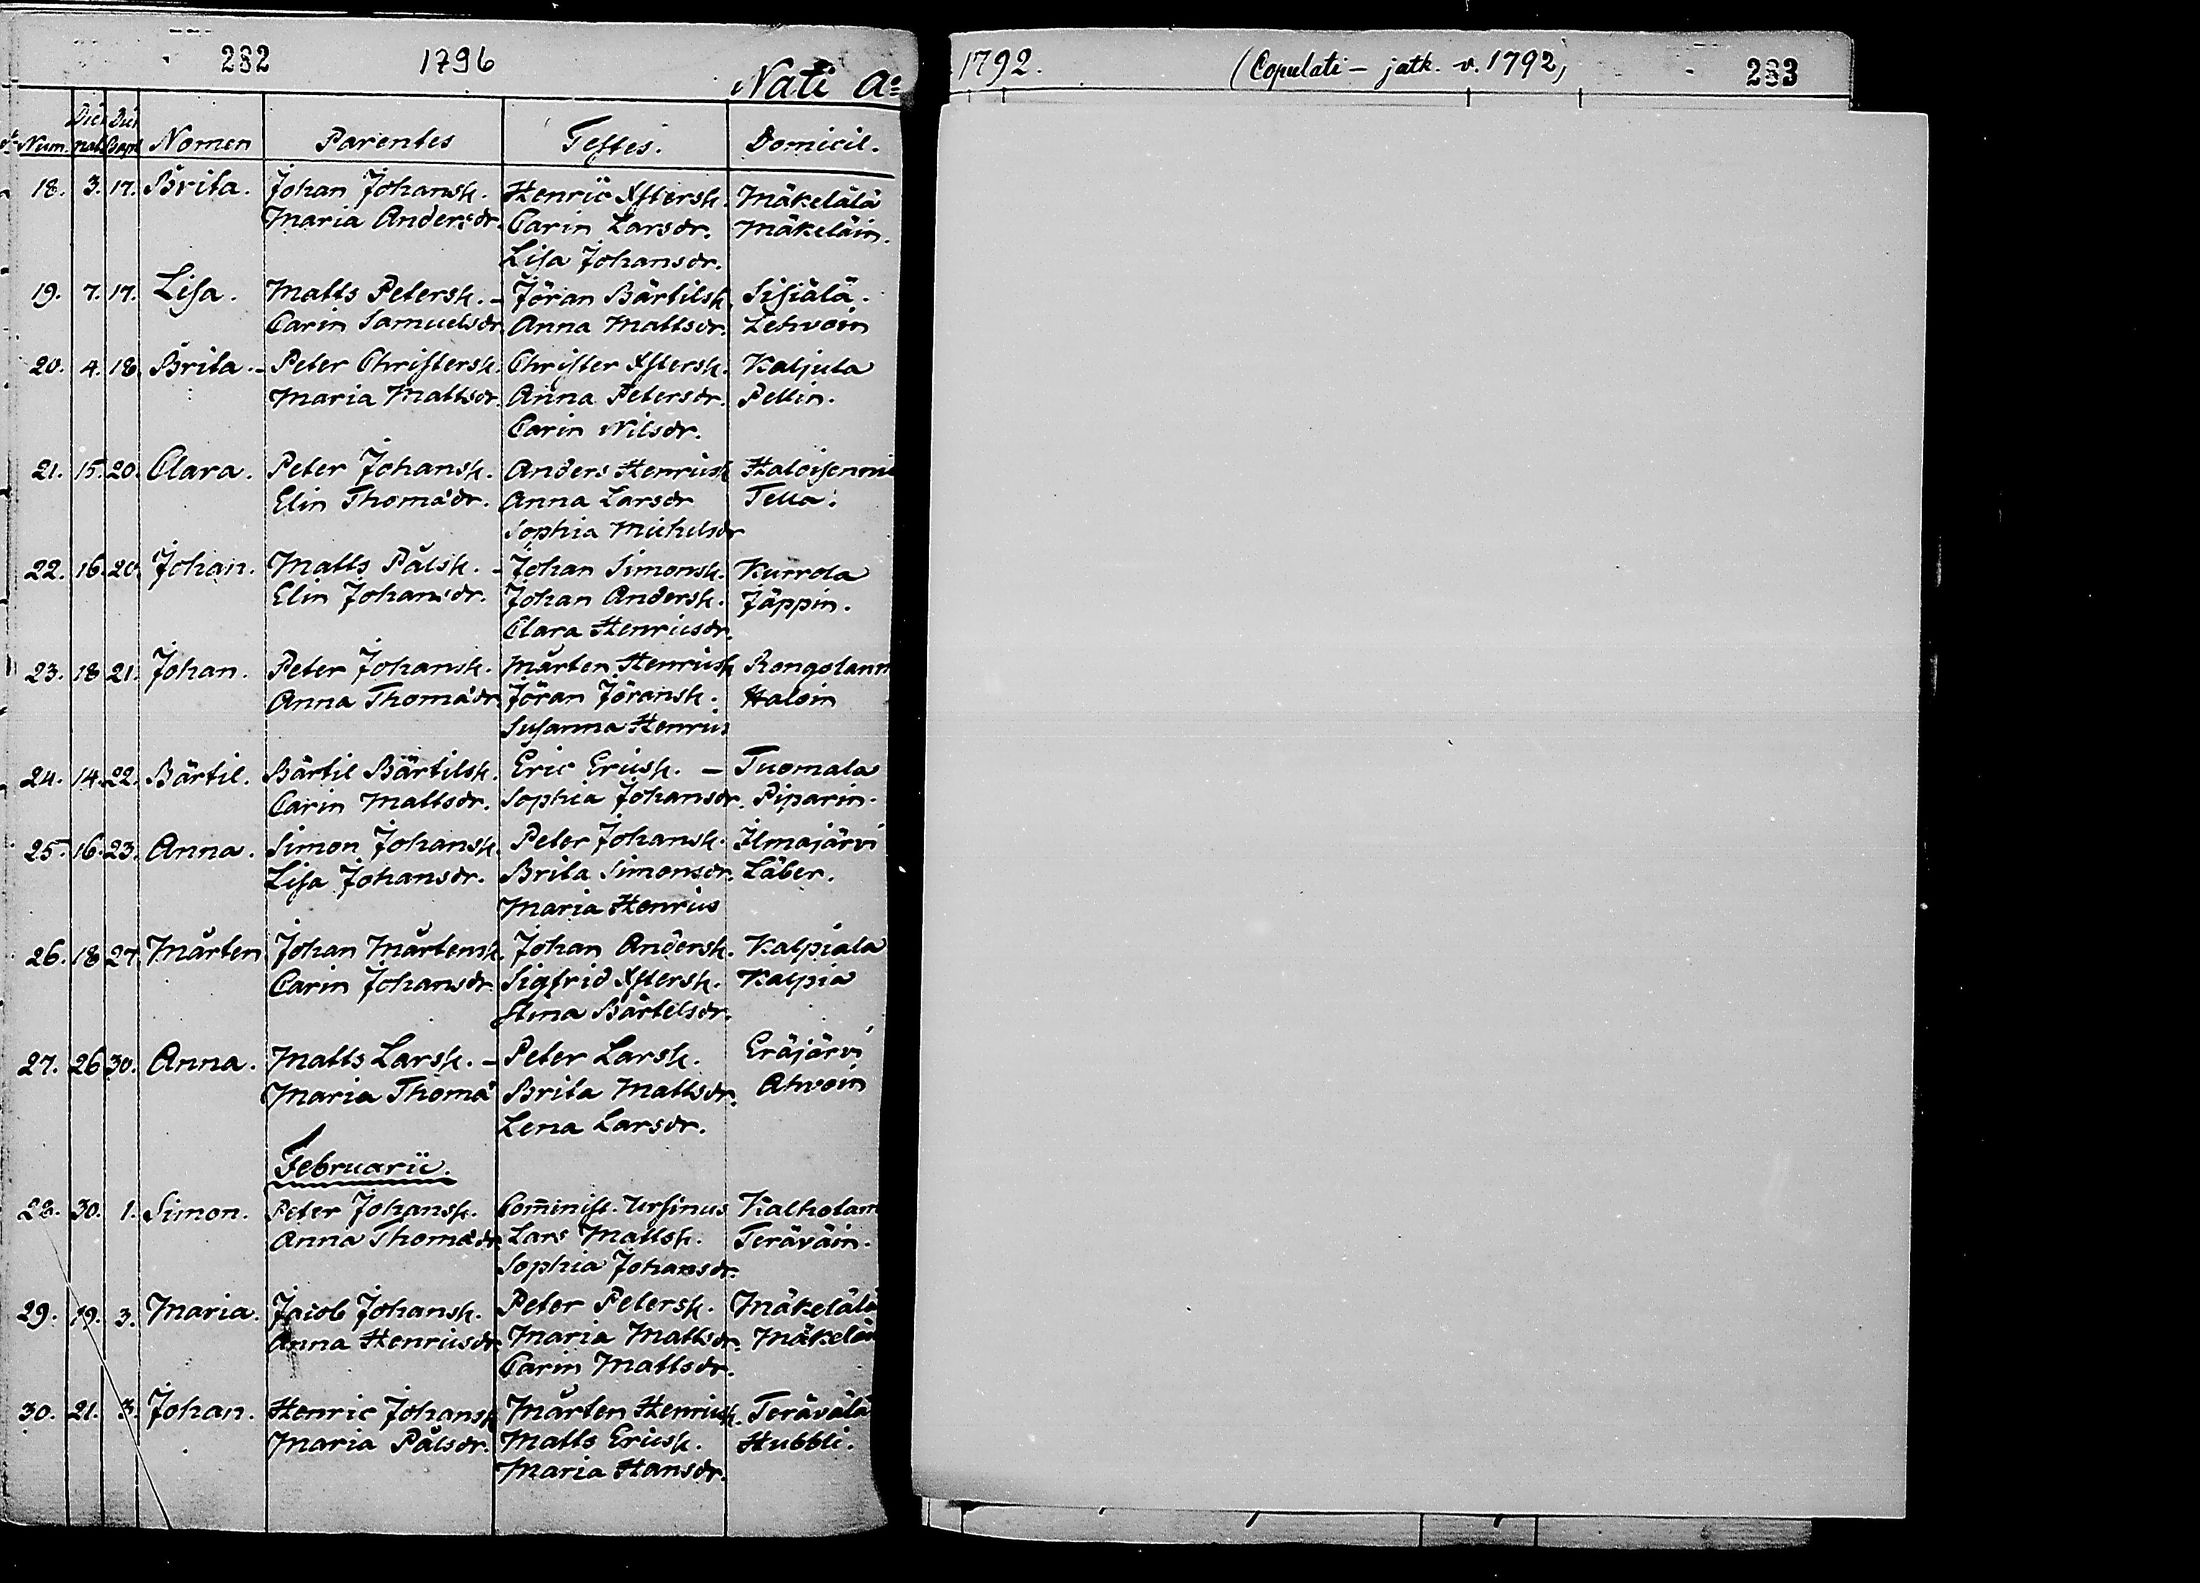 282 1796
Nati Ao
Num. Die nat. Die Bapt. Nomen Parentes Testes. Domicil.
18. 3. 17. Brita. Johan Johansk. Henric Xstersk. Mäkelälä
Maria Andersdr. Carin Larsdr. Mäkeläin.
Lisa Johansdr.
19. 7. 17. Lisa. Matts Petersk. - Jöran Bärtilsk. Sisiälä.
Carin Samuelsdr. Anna Mattsdr. Lehvoin
20. 4. 18. Brita. - Peter Christersk. Christer Xstersk. Kaljula
Maria Mattsdr. Anna Petersdr. Pellin.
Carin Nilsdr.
21. 15. 20. Clara. Peter Johansk. Anders Henricsk
Elin Thomædr. Anna Larsdr Tella.
Sophia Michelsdr
22. 16. 20. Johan. Matts Pålsk. - Johan Simonsk. Kurrola
Elin Johansdr. Johan Andersk. Jäppin.
Clara Henricsdr.
23. 18 21. Johan. Peter Johansk. Mårten Henricsk Rongolann
Anna Thomædr. Jöran Jöransk. Haloin
Susanna Henrics
24. 14. 22. Bärtil. Bärtil Bärtilsk. Eric Ericsk. - Tuomala
Carin Mattsdr. Sophia Johansdr. Piparin.
25. 16. 23. Anna. Simon Johansk. Peter Johansk. Ilmajärvi
Lisa Johansdr. Brita Simonsdr. Läber.
Maria Henrics
26. 18 27. Mårten Johan Mårtensk. Johan Andersk. Kalpiala
Carin Johansdr. Sigfrid Xstersk. Kalpia
Anna Bärtelsdr.
27. 26 30. Anna. Matts Larsk. - Peter Larsk. Eräjärvi
Maria Thomæ Brita Mattsdr. Ahvoin
Lena Larsdr.
Februarii.
28. 30. 1. Simon. Peter Johansk. Com̄inist. Ursinus Kalholam
Anna Thomædr. Lars Mattsk. Teräväin.
Sophia Johansdr.
29. 19. 3. Maria. Jacob Johansk. Peter Petersk. Mäkelälä
Anna Henricsdr. Maria Mattsdr. Mäkeläi
Carin Mattsdr.
30. 21. 3. Johan. Henric Johansk Mårten Henricsk. Terävälä
Maria Pålsdr. Matts Ericsk. Hubbli.
Maria Hansdr.
1792. (Copulati - jatk. v. 1792) 283